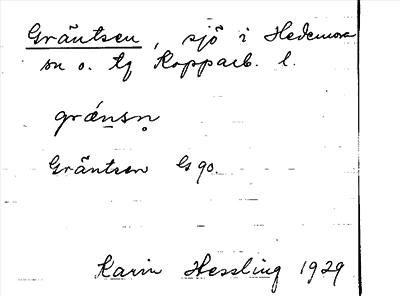 Gräntsen, sjö i Hedemora
sn o. tg Kopparb. l.
grä́nsn̥
Gräntsen G 90.
Karin Hessling 1929